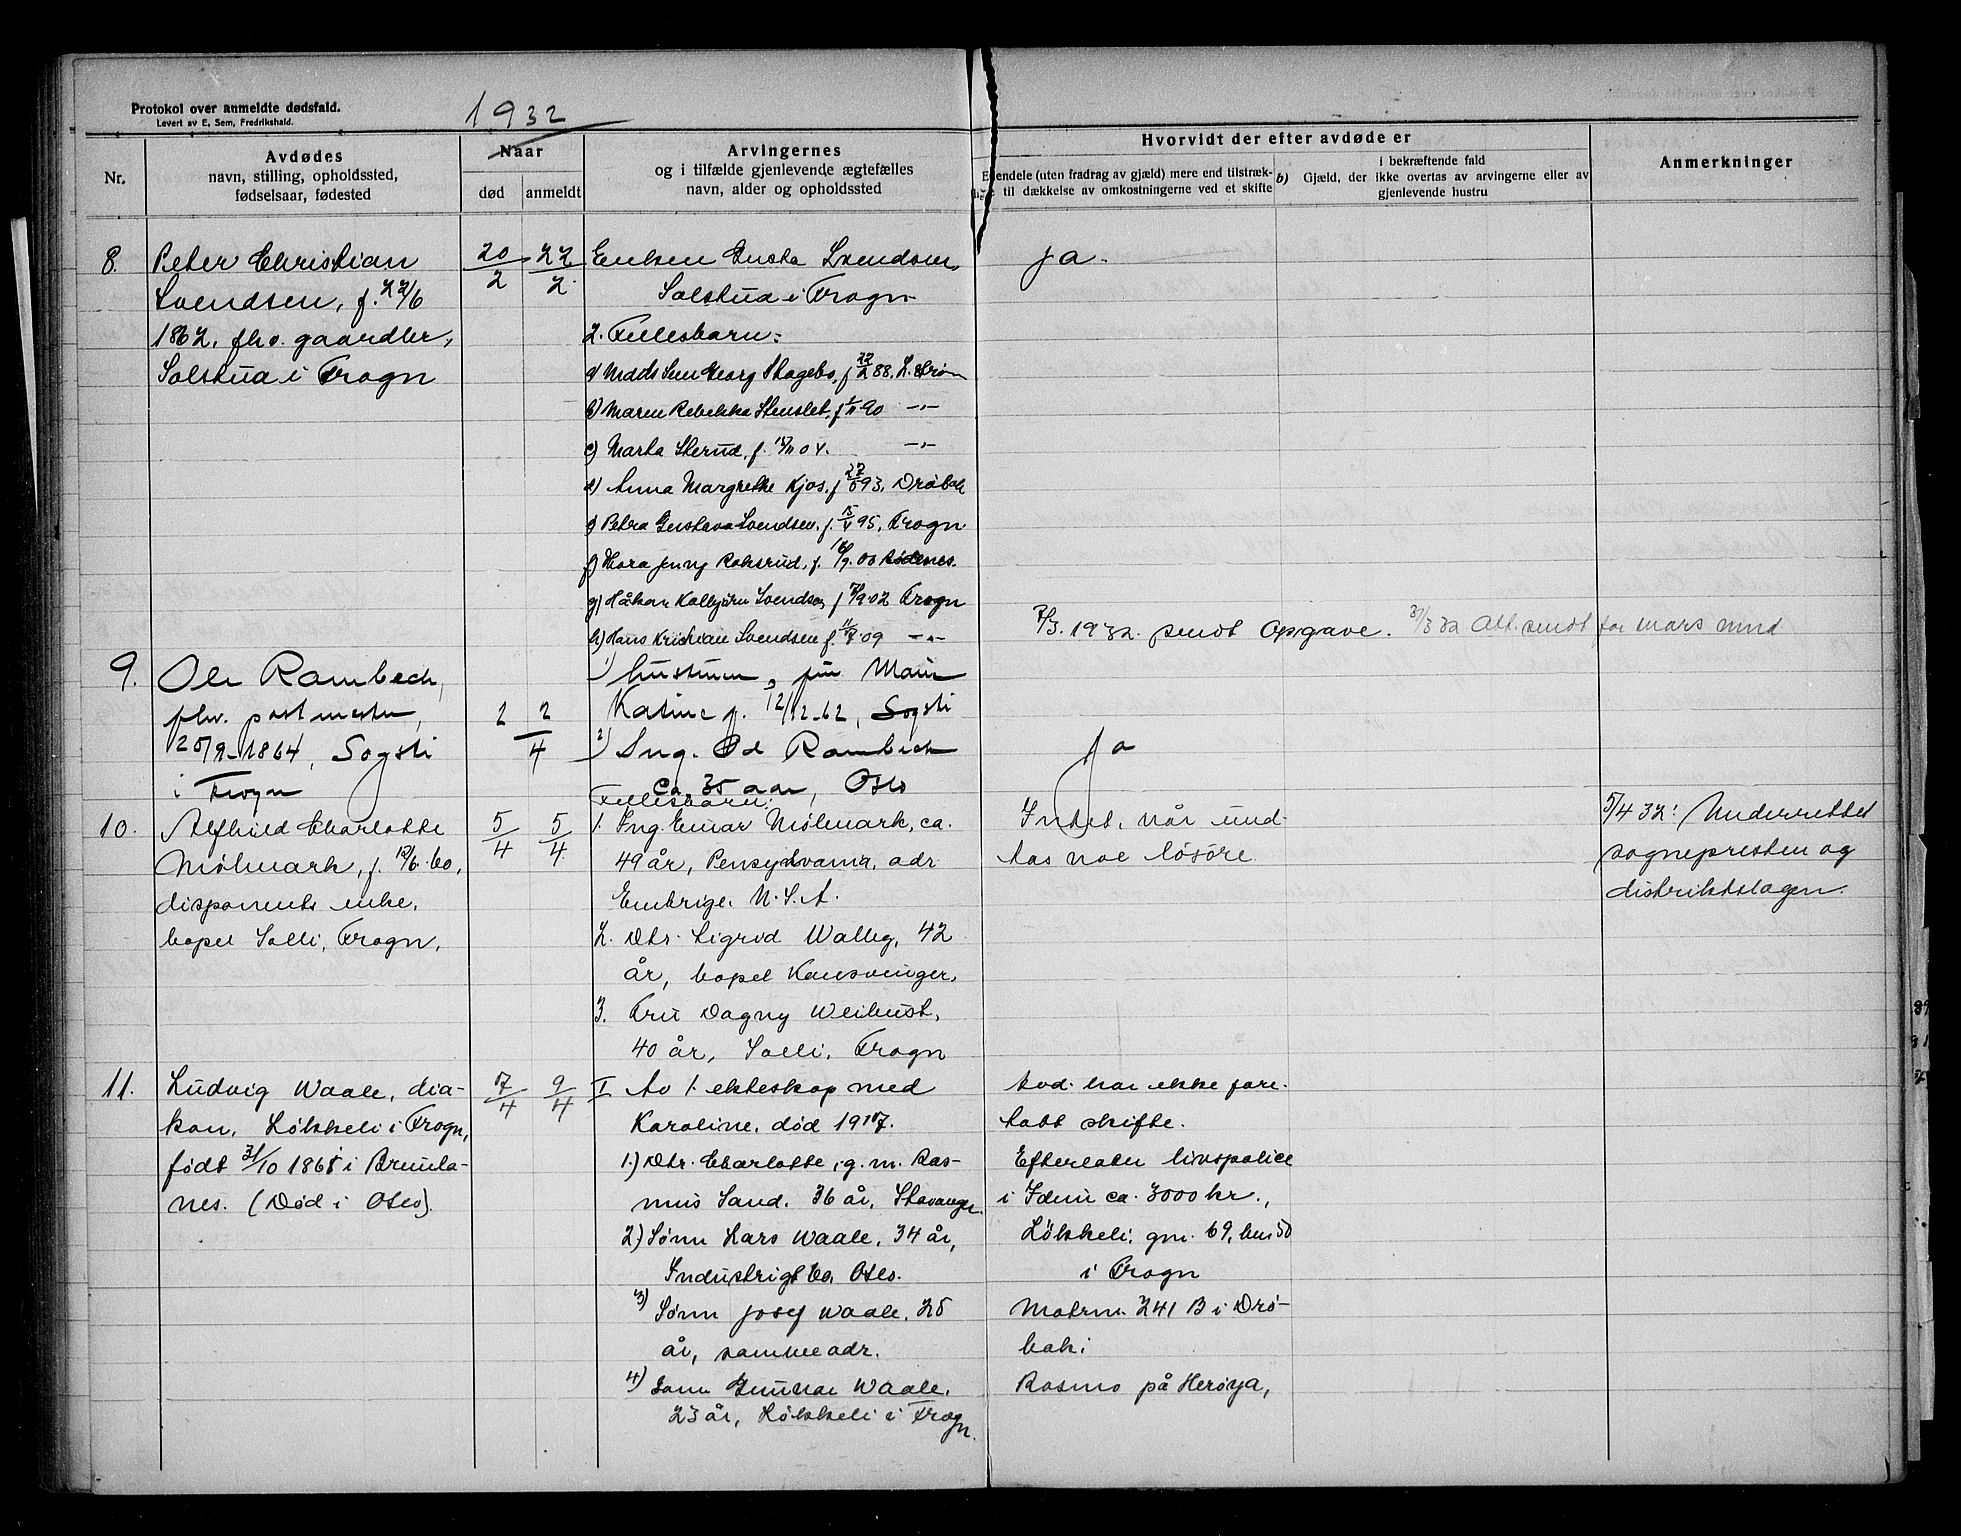 Protokol over anmeldte dødsfald.
Levert av E. Sem, Fredrikshald.
1932
Nr.
Avdødes
navn, stilling, opholdssted,
fødselsaar, fødested
Naar
død
anmeldt
Arvingernes
og i tilfælde gjenlevende ægtefælles
navn, alder og opholdssted
Hvorvidt der efter avdøde er
Eiendele (uten fradrag av gjæld) mere end tilstræk-
til dækkelse av omkostningerne ved et skifte
b)
i bekræftende fald
Gjæld, der ikke overtas av arvingerne eller av
gjenlevende hustru
Anmerkninger
8.
Peter Christian
Svendsen, f. 22/6
1862, fhv. gaardbr,
Solstua i Frogn
20/2
22/2
Enken Gusta Svendsen,
Solstua i Frogn
2. Fellesbarn:
a) Georg Skagebo, f 22/2 88,
b) Maren Rebekka Stenslet, f 90 -"-
c) Marta Skerud, f. 04. -"-
d) Anna Margrethe Kjos, f 93, Drøbak
e) Petra Gustava Svendsen, f. 95, Frogn
f) Jenny f. 00 Rødenes.
g) Håkon Kolbjørn Svendsen f 02 Frogn
h) Hans Kristian Svendsen f. 09 -"-
7/3. 1932. sendt Opgave. 31/3 32 Att. sendt for mars mnd
9.
Ole Rambech,
fhv. postmester,
25/9-1864, Sogsti
i Frogn
2 2
4
1) hustruen, fru Marie
Katrine f. 12/12-62, Sogsti
2) Ing. Od Rambech
ca. 35 aar, Oslo
ja.
ja
10.
Alfhild Charlotte
Mølmark, f. 12/6. 60,
disponents enke,
bopel Solli, Frogn.
5/4
5/4
Fellesbarn:
1. Ing. Einar Mølmark, ca.
49 år, Pensylvania, adr
Embrige. U.S.A.
2. Dtr. Sigrid 42
år, bopel Kongsvinger,
3. Fru Dagny
40 år, Solli, Frogn
Intet, når und-
tas noe løsøre
5/4 32: Underrettet
sognepresten og
distriktslægen.
11.
Ludvig Waale, dia-
kon, Løkkeli i Frogn,
født 31/10 1868 i Brunla-
nes. (Død i Oslo).
7/4
9/4
I Av 1. ekteskap med
Karoline, død 1917.
1.) Dtr. Charlotte, g. m. Ras-
mus Sand. 36 år, Stavanger.
2.) Sønn Lars Waale, 34 år,
Industrigt 60, Oslo.
3) Sønn Josef Waale, 25
år, samme adr.
4) Sønn Gunnar Waale,
23 år, Løkkeli i Frogn.
Avd. har ikke fore-
tatt skifte.
Efterlater livspolice
i Idun ca. 3000 kr.,
Løkkeli, gnr. 69, bnr 50
i Frogn
Matrnr. 241 B i Drø-
bak;
Rosmo på Herøya,